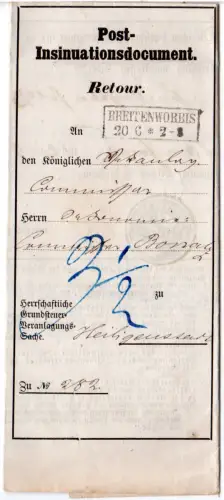 Post-
Insinuationsdocument.
Retour.
BREITENWORBIS
20 6 * 2-3
An
den Königlichen
Commissar
Herrn Oekonomie-
Commissar
2 1/2
zu
Herrschaftliche
Grundsteuer-
Veranlagungs-
Sache. Heiligenstadt
Zu № 282